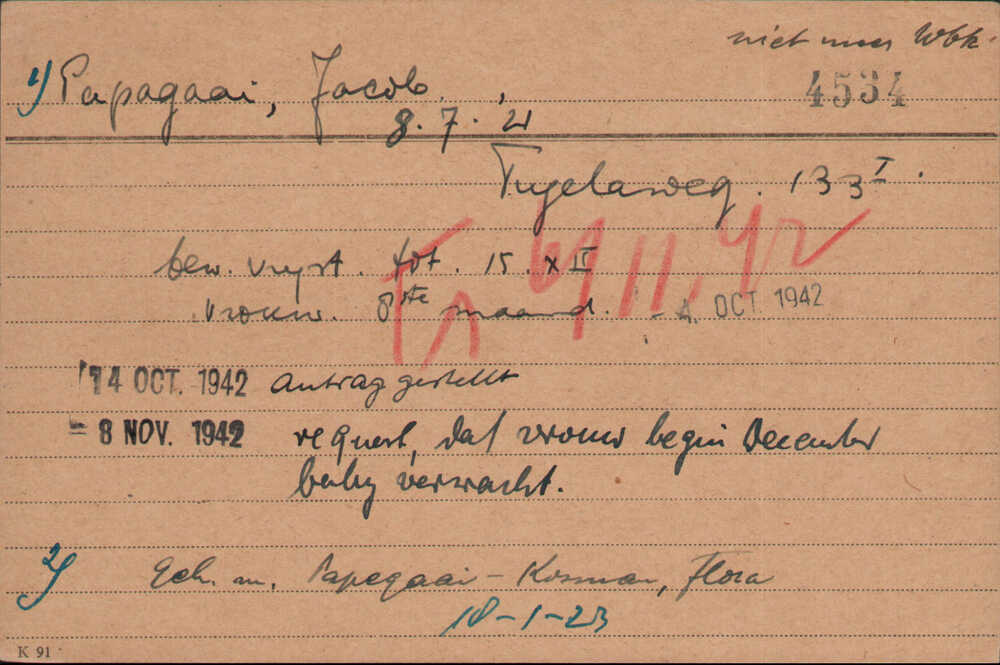 niet meer Wbk.
1) Papagaai, Jacob. 4534
8.7.'21
Tugelaweg. 133 I.
bew. vrijst. tot. 15. XII
vrouw. 8ste maand. - 4. OCT 1942
11.42
14 OCT. 1942 Antrag gestellt
= 8 NOV. 1942 request, dat vrouw begin December
baby verwacht.
2) Geh. m. Papegaai - Kosman, Flora
18-1-23
K 91